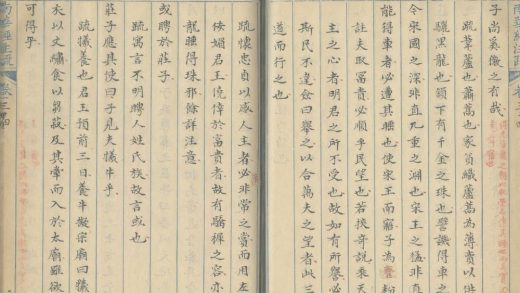 子尚奚微之有哉
疏葦蘆也蕭蒿也家貧織蘆蒿為薄賣以供
驪黑龍也頷下有千金之珠也譬譏得車之
今宋國之深非直九重之淵也宋王之猛非直
能得車者必遭其睡也使宋王而寤子為韲粉
註夫取富貴必順乎民望也若挾奇說乘天
主之心者明君之所不受也故如有所譽必
斯民不違僉曰舉之以合萬夫之望者此三
道而行之也
疏懷忠貞以感人主者必非常之賞而用左
伎媚君王徼倖於富貴者故有驕稺之容亦
龍睡得珠耶餘詳注意
或聘於莊子
疏寓言不明聘人姓氏族故言或也
莊子應其使曰子見夫犧牛乎
疏犧養也君王預前三日養牛擬宗廟曰犧
衣以文繡食以芻菽及其牽而入於太廟雖欲
可得乎
南華經注疏